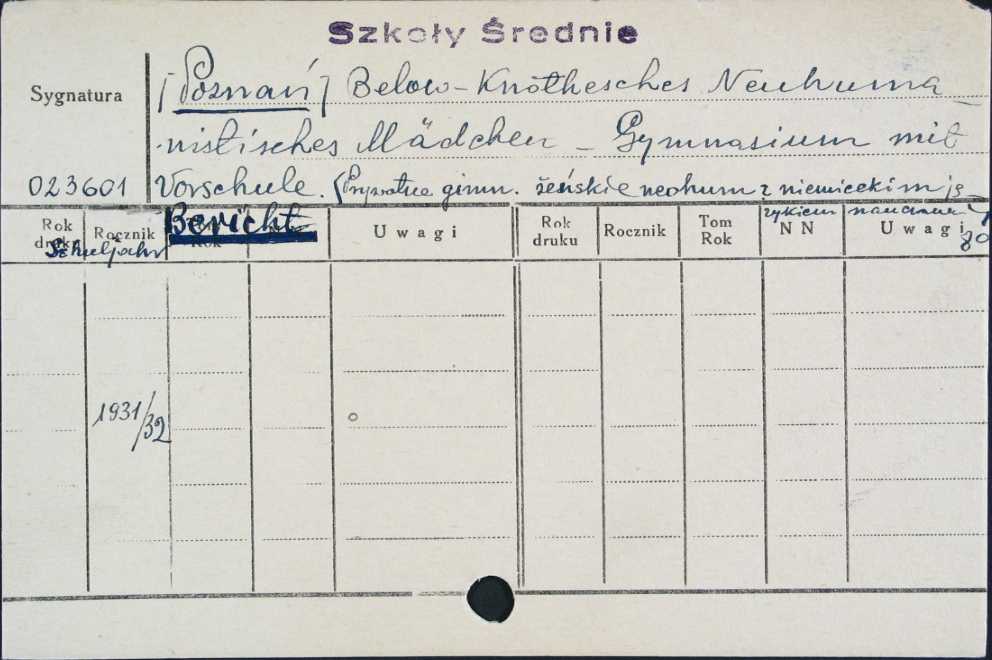 Szkoły Średnie
Sygnatura
[Poznań] Below-Knothesches Neuhuma-
nistisches Mädchen - Gymnasium mit
023601 Vorschule. (Prywatne gimn. żeńskie neohum z niemieckim ję-
zykiem
Rok druku Rocznik Rok Uwagi Rok druku Rocznik Tom Rok NN Uwagi
Schuljahr Bericht
1931/32